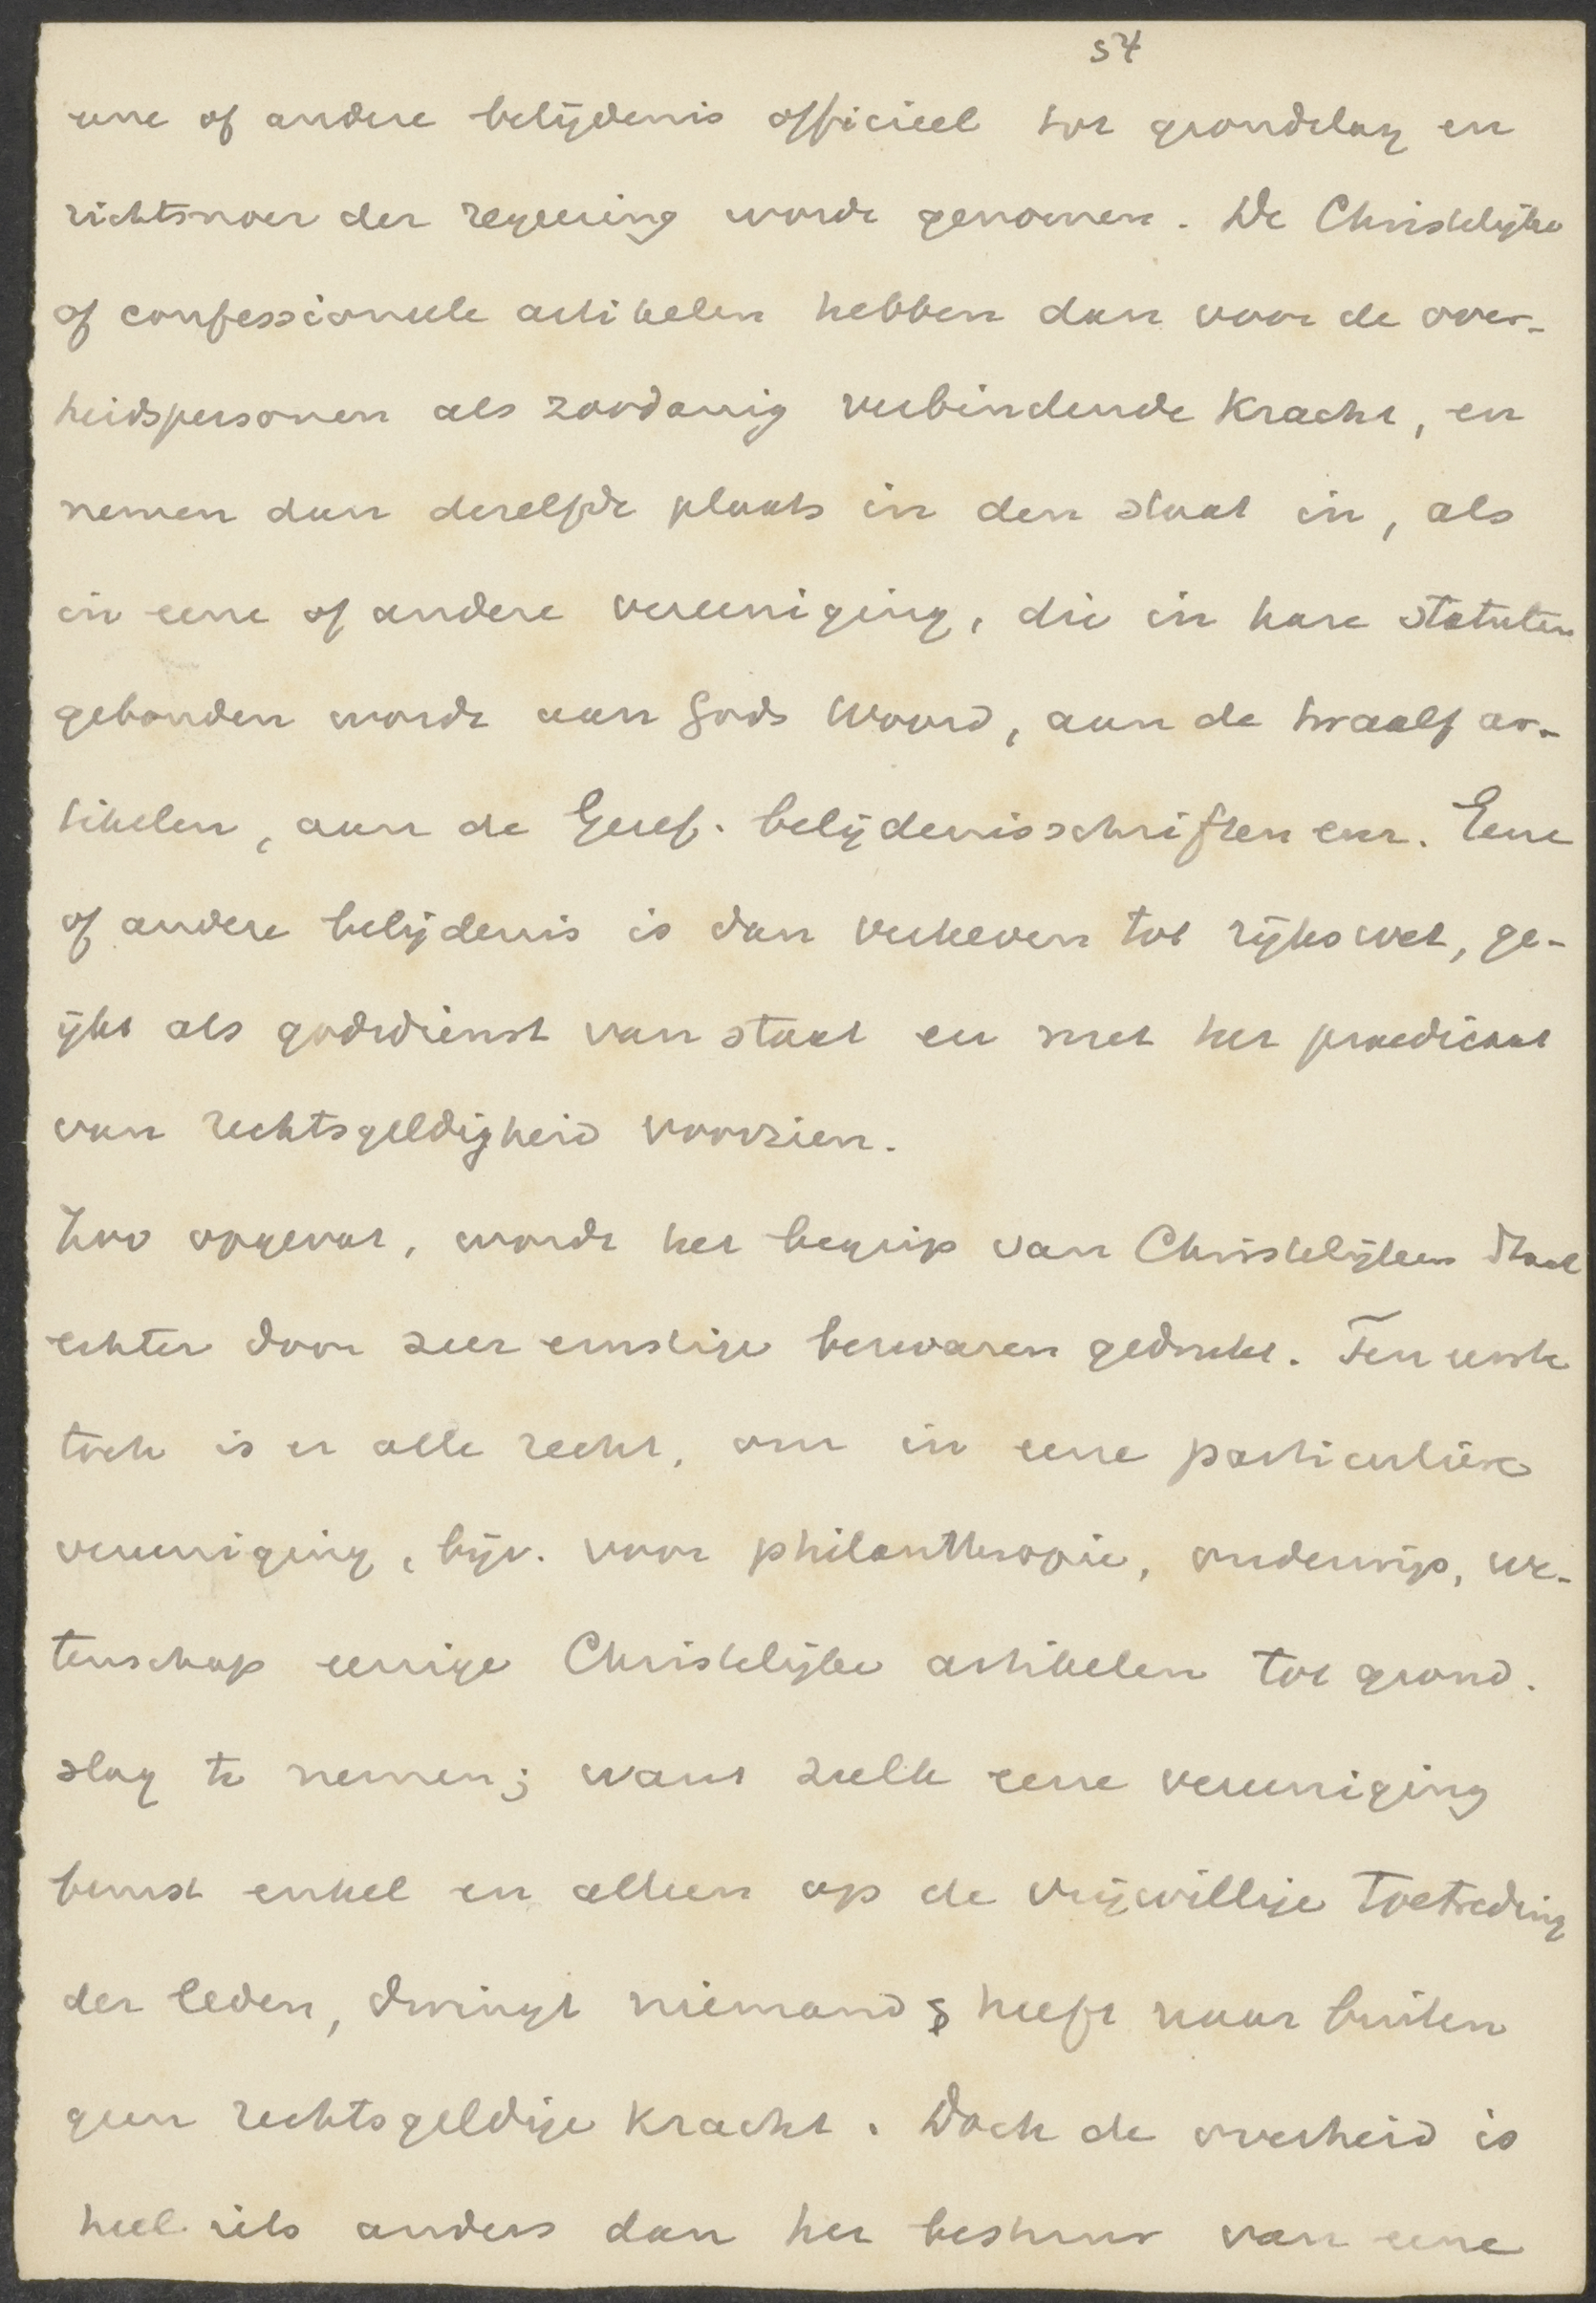 54
eene of andere belijdenis officieel tot grondslag en
richtsnoer der regeering wordt genomen. De Christelijke
of confessioneele artikelen hebben dan voor de over-
heidspersonen als zoodanig verbindende kracht, en
nemen dan dezelfde plaats in den staat in, als
in eene of andere vereeniging, die in hare statuten
gebonden wordt aan Gods Woord, aan de twaalf ar-
tikelen, aan de Geref. belijdenisschriften enz. Eene
of andere belijdenis is dan verheven tot rijkswet, ge-
ijkt als godsdienst van staat en met het praedicaat
van rechtsgeldigheid voorzien.
Zoo opgevat, wordt het begrip van Christelijken staat
echter door zeer ernstige bezwaren gedrukt. Ten eerste
toch is er alle recht, om in eene particuliere
vereeniging, bijv. voor philanthropie, onderwijs, we-
tenschap eenige Christelijke artikelen tot grond-
slag te nemen; want zulk eene vereeniging
berust enkel en alleen op de vrijwillige toetreding
der leden, dwingt niemand & heeft naar buiten
geen rechtsgeldige kracht. Doch de overheid is
heel iets anders dan het bestuur van eene